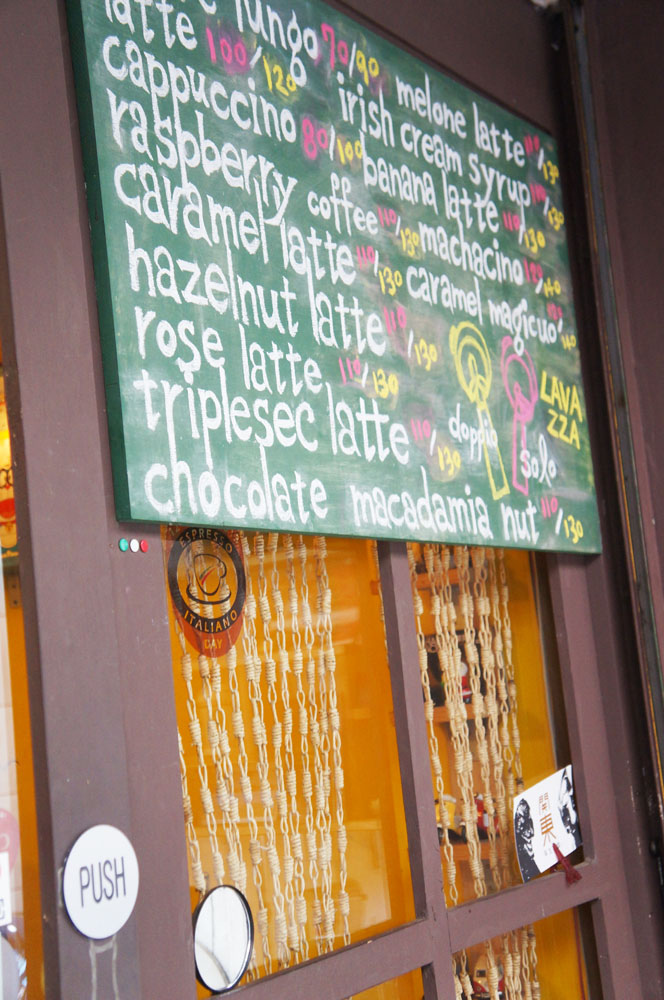 lungo 70/90
latte 100/120
cappuccino 80/100
raspberry coffee 110/130
caramel latte 110/130
hazelnut latte 110/130
rose latte 110/130
triplesec latte 110/130
chocolate macadamia nut 110/130
melone latte 110/130
irish cream syrup 110/130
banana latte 110/130
machacino 120/140
caramel magicuo 120/140
doppio
solo
LAVA
ZZA
ESPRESSO
ITALIANO
DAY
PUSH